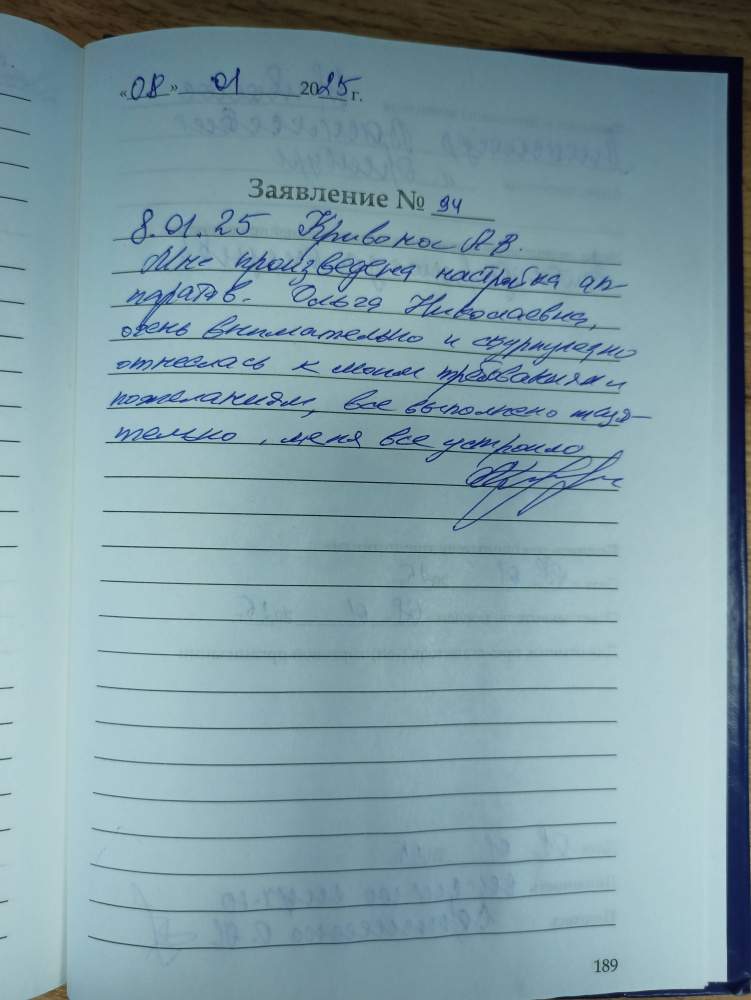 «08» 01 2025 г.
Заявление № 94
8.01.25 Кривонос А.В.
Мне произведена настройка ап-
паратов. Ольга Николаевна,
очень внимательно и скурпулезно
отнеслась к моим требованиям и
пожеланиям, все выполнено тщя-
тельно, меня все устроило
189